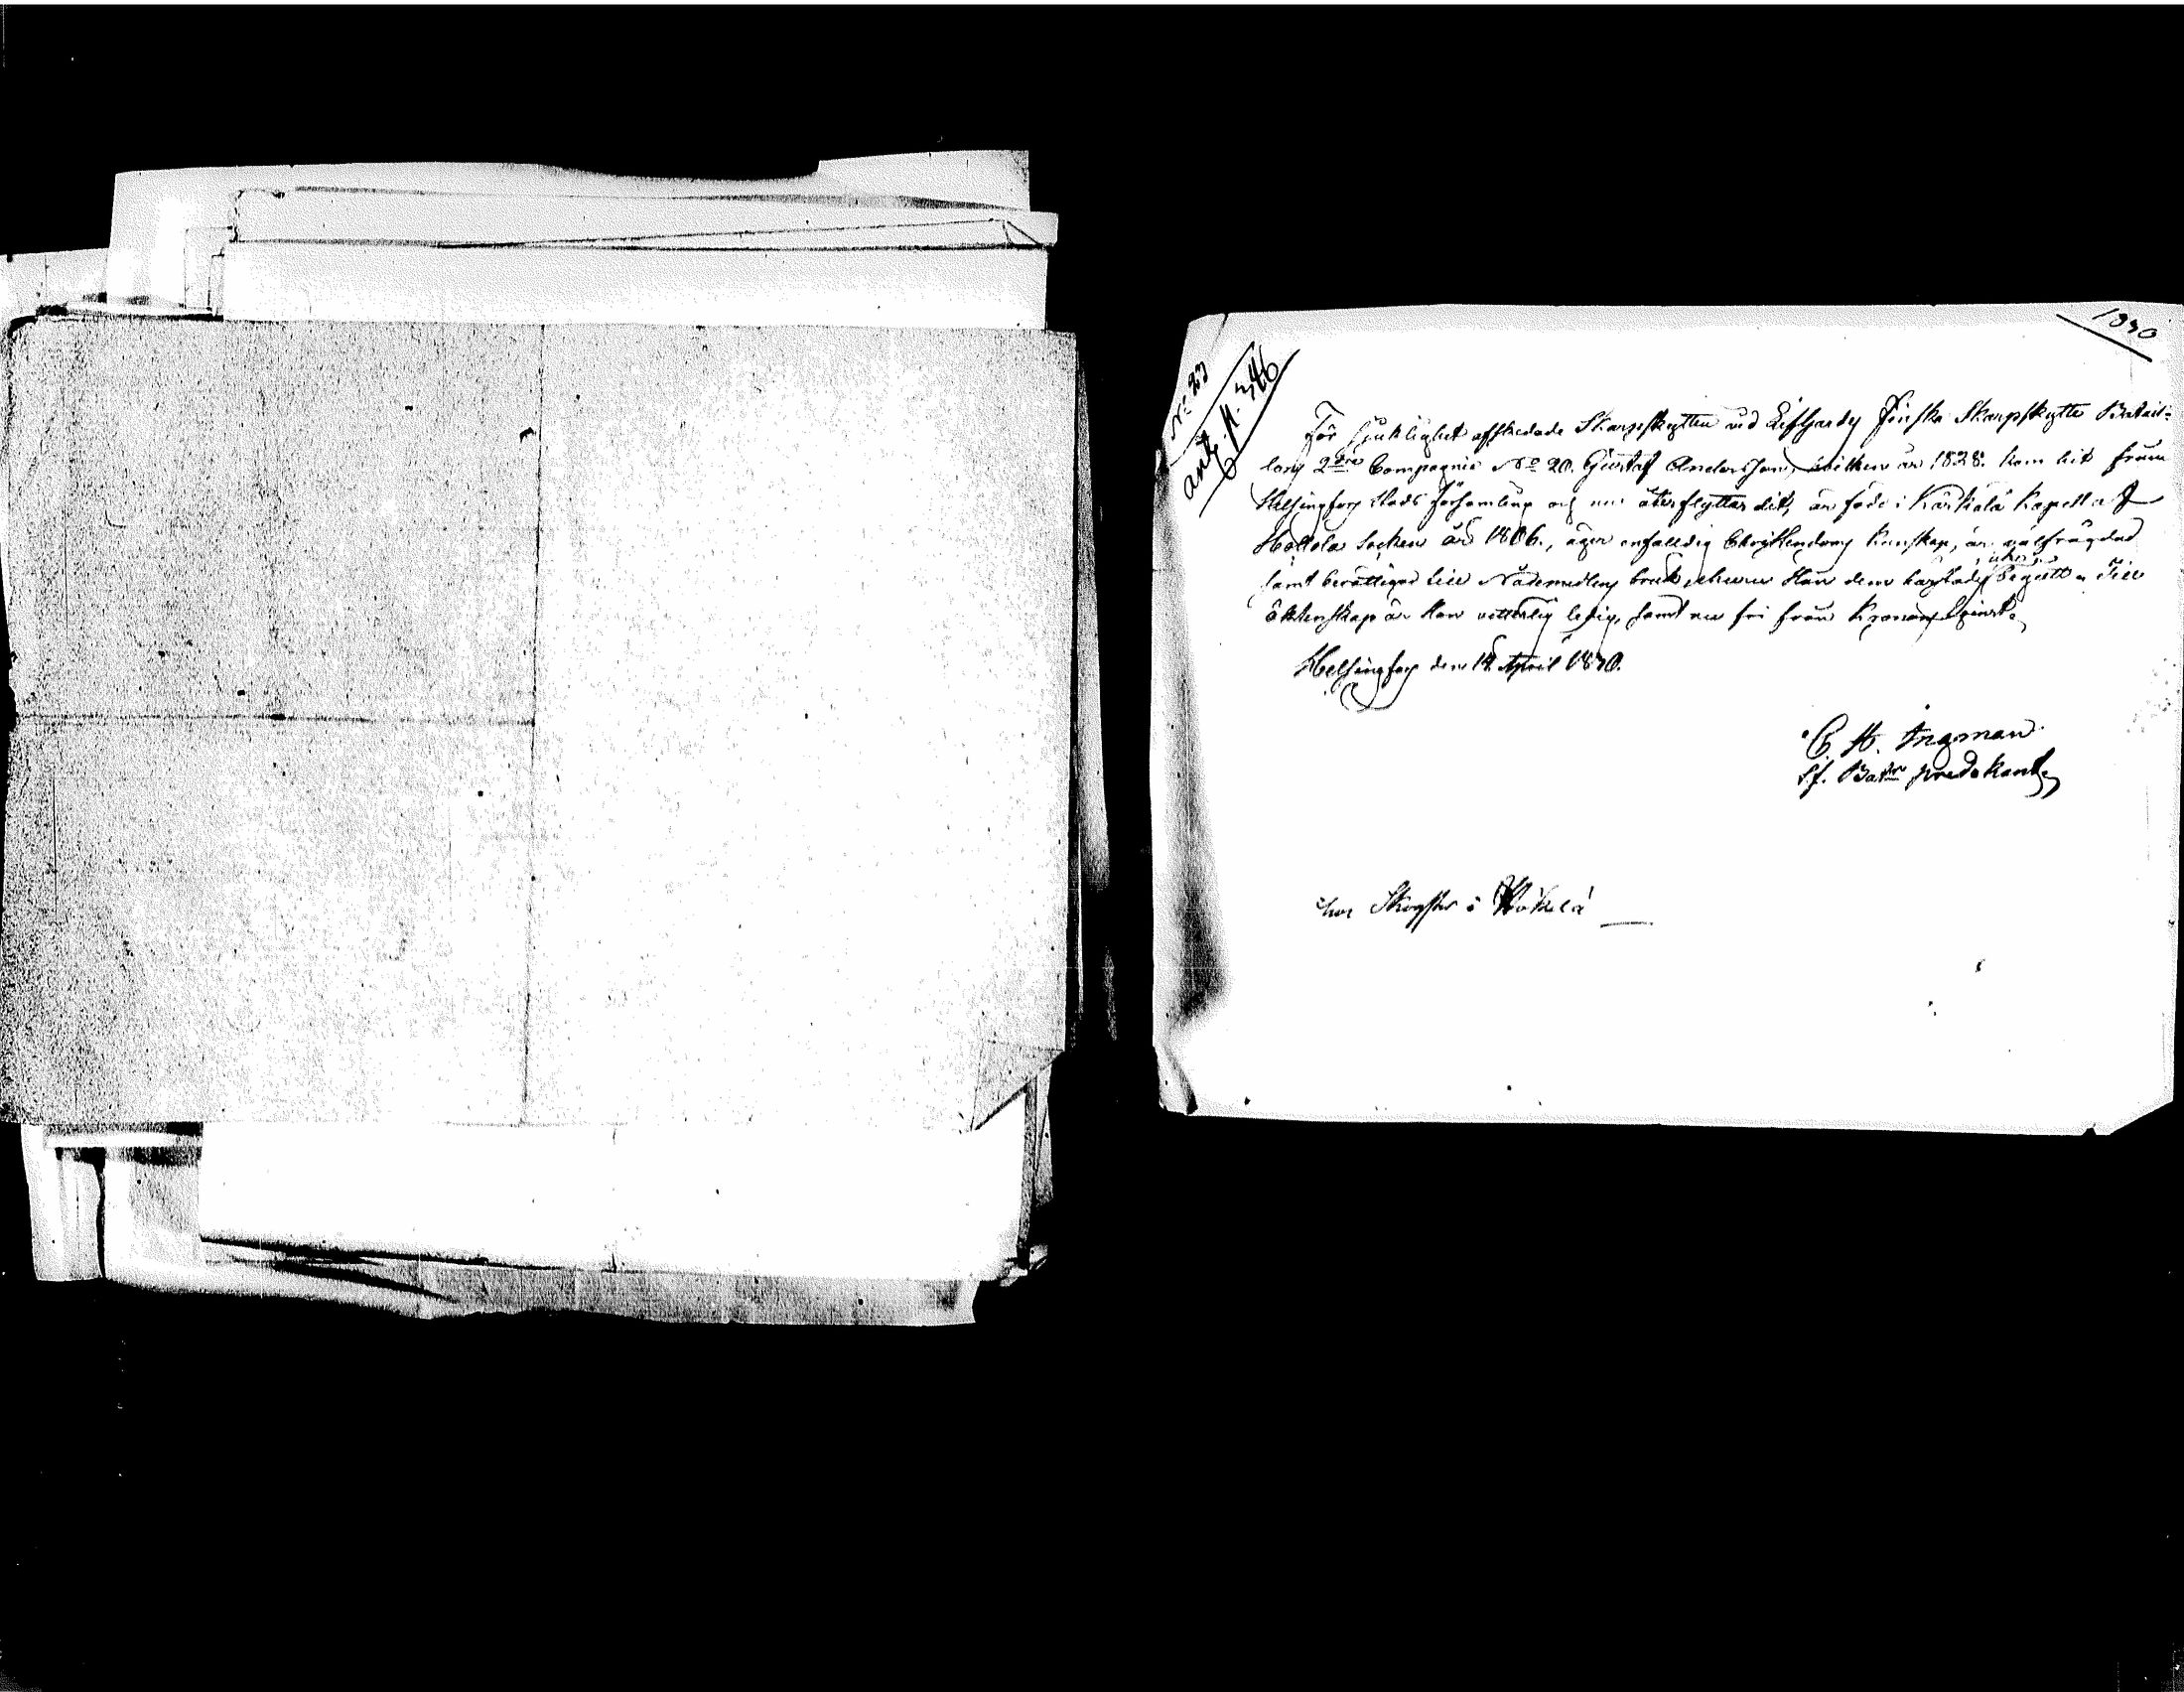 1830
N:o 23
ant. p. 346
För sjuklighet afskedade Skarpskytten vid Lifgardes Finska Skarpskytte Batail-
lons 2dra Compagnie No 20. Gustaf Andersson, hvilken år 1828. kom hit från
Helsingfors Stads församling och nu återflyttar dit, är född i Kärkälä Kapell af
Hollola Socken år 1806., äger enfalldig Christendoms kunskap, är välfrägdad
samt berättigad till Nådemedlens bruk, ehuru Han dem härstädes icke begått. Till
Äktenskap är Han vetterlig ledig, samt nu fri från Kronans tjenst.
Helsingfors den 14 April 1830.
C. H. Ingman
Bat:ns predikant
hos Skogster i